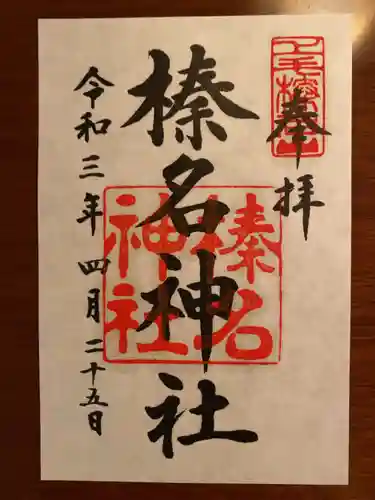 奉拝
上毛榛名山
榛名神社
榛名
神社
令和三年四月二十五日